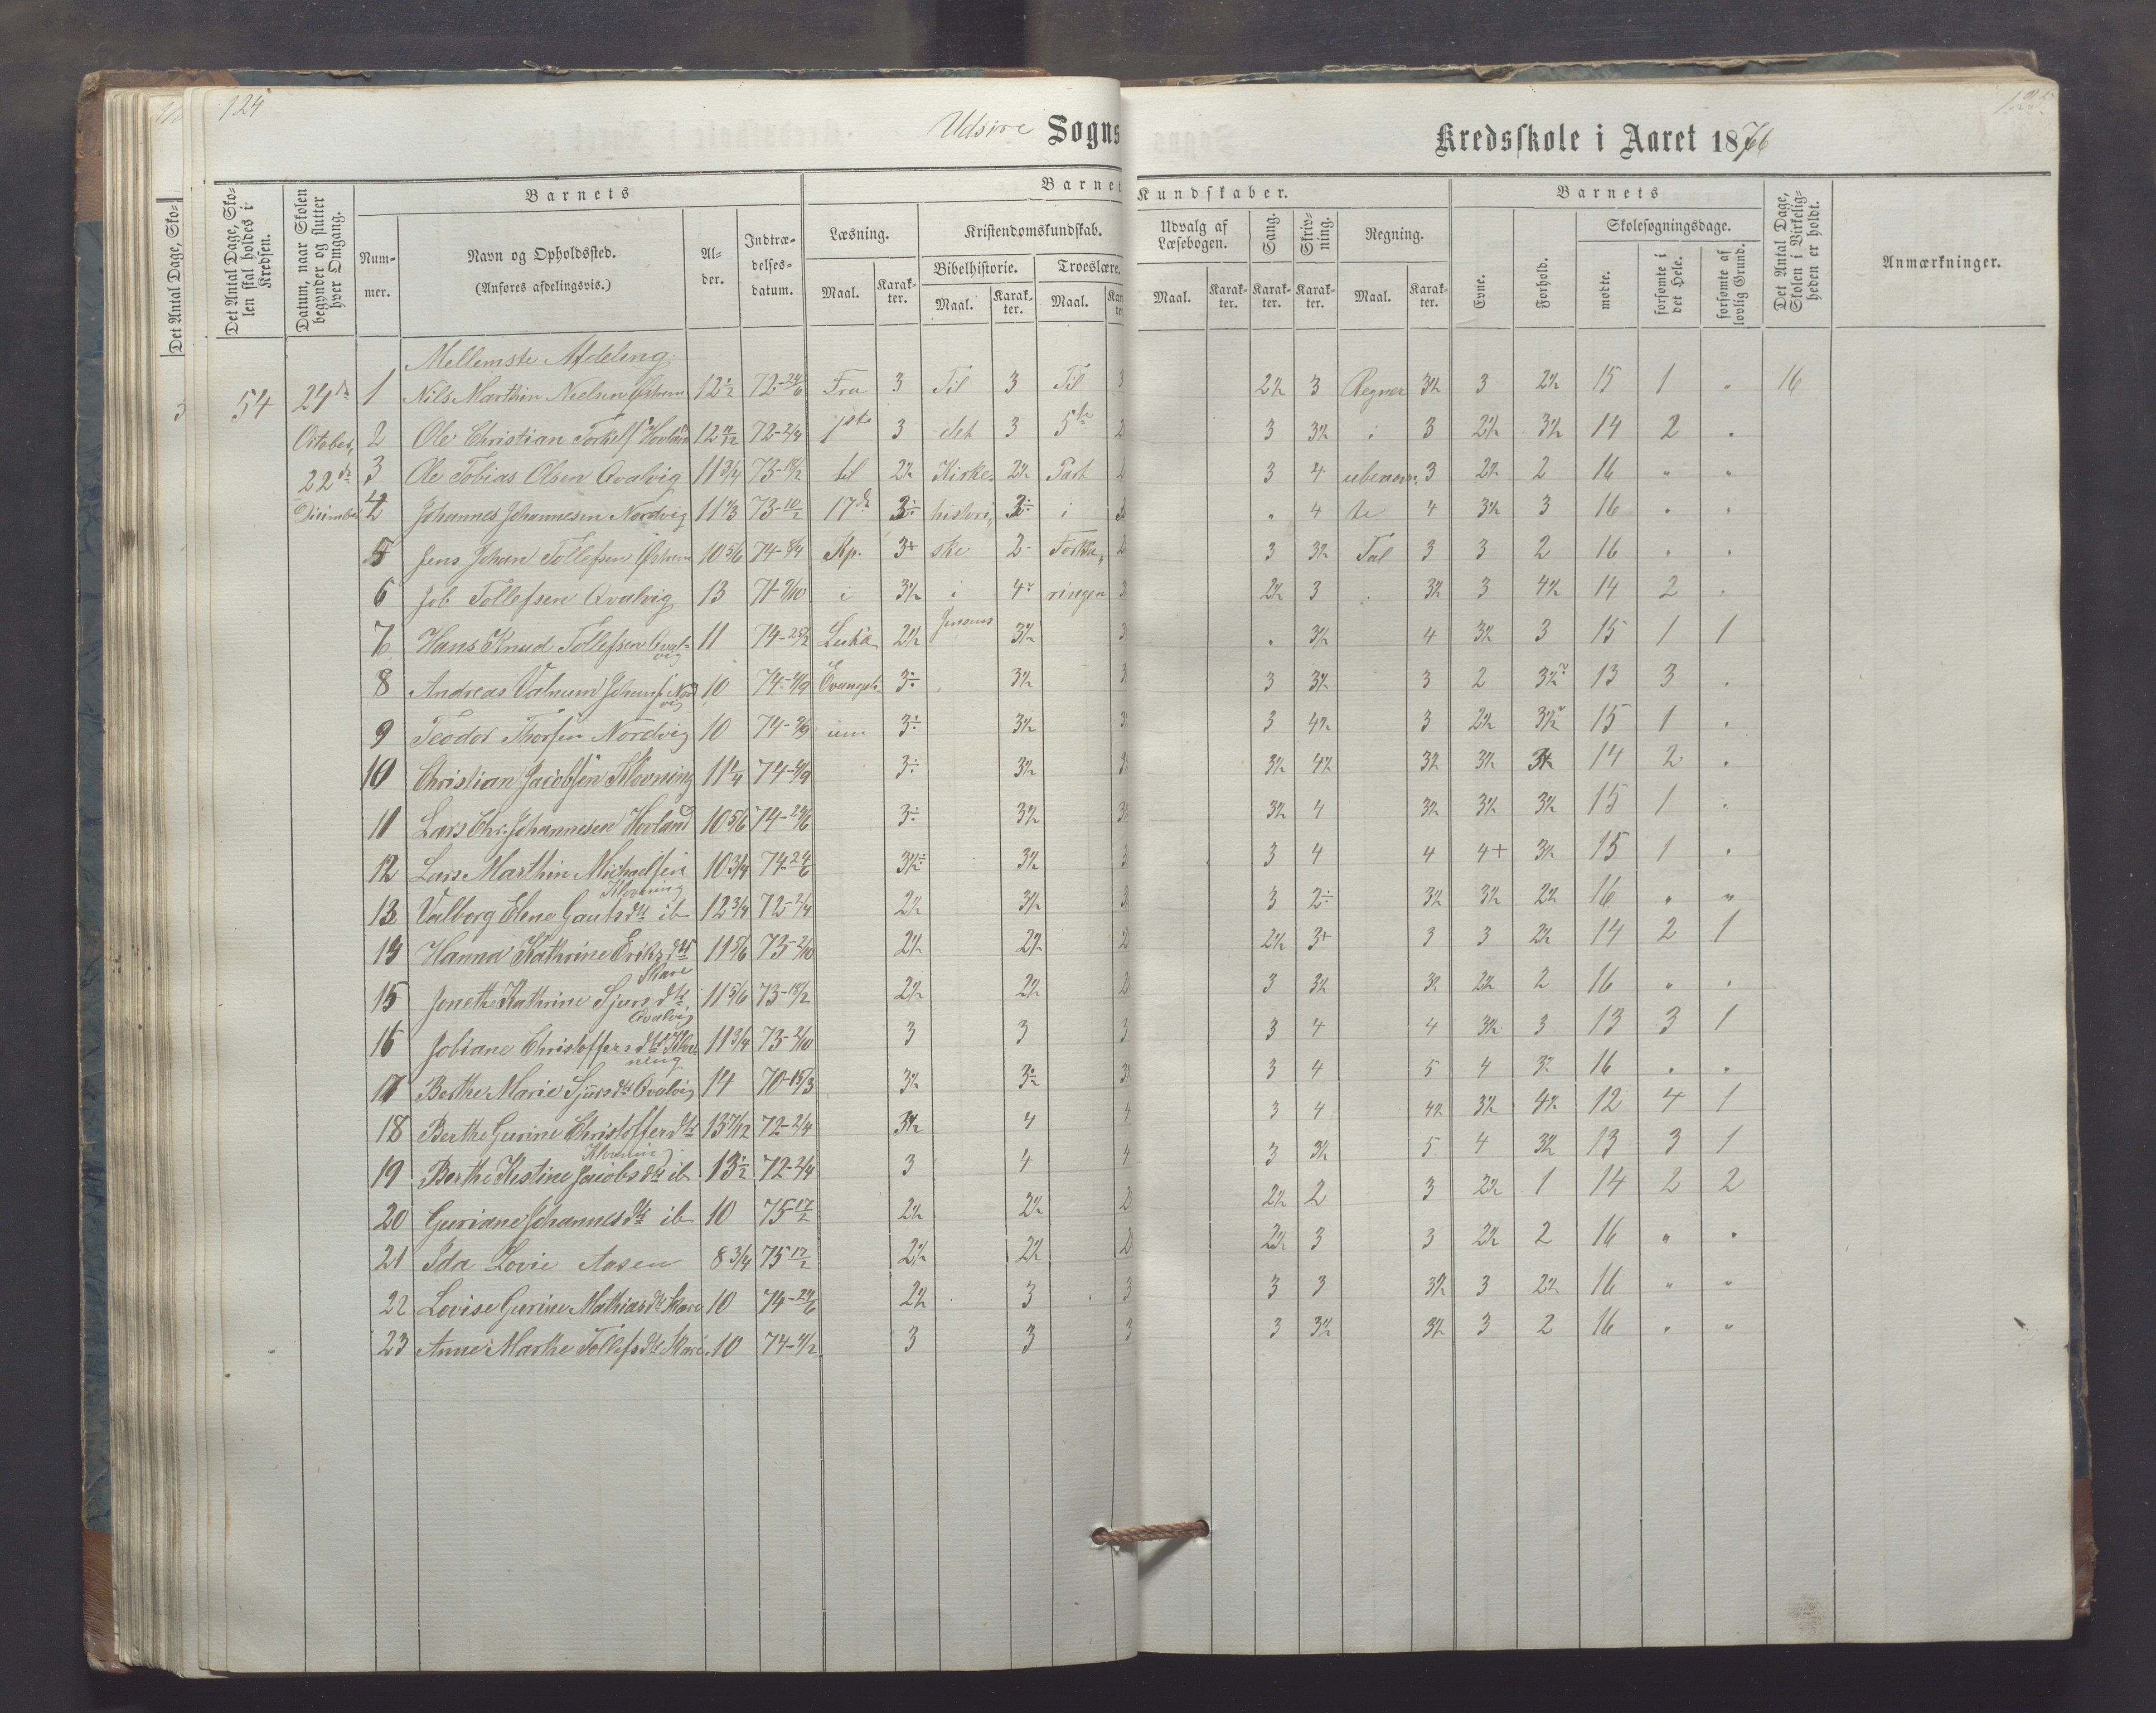 124
Udsire Sogns Kredsskole i Aaret 1876
Det Antal Dage, Skolen skal holdes i Kredsen.
Datum, naar Skolen begynder og slutter hver Omgang.
Barnets
Nummer.
Navn og Opholdssted.
(Anføres afdelingsvis.)
Alder.
Indtrædelsesdatum.
Barnets Kundskaber.
Læsning.
Kristendomskundskab.
Bibelhistorie.
Troeslære.
Maal. Karakter. Maal. Karakter. Maal.
Udvalg af Læsebogen.
Sang.
Skrivning.
Regning.
Maal. Karakter. Karakter. Karakter. Maal. Karakter.
Barnets
Evne.
Forhold.
Skolesøgningsdage.
mødte.
forsømte i det Hele.
forsømte af lovlig Grund.
Det Antal Dage, Skolen i Virkeligheden er holdt.
Anmærkninger.
Det Antal Dage, Sko-
Mellemste Afdeling.
54 24de 1 Nils Marthin Nielsen 12 1/2 72-24/6 Fra 3 Til 3 Til 3 2½ 3 Regner 3½ 3 2½ 15 1 " 16
October, 2 Ole Christian Torkels. Hovland 72-2/4 1ste 3 det 3 5te 2 3 3½ i 3 2½ 3½ 14 2 "
22de 3 Ole Tobias Olsen Qvalvig 11 3/4 73-18/2 til 2½ Kirke- 2½ Part 2 3 4 ubenævn- 3 2½ 2 16 " "
December 4 Johannes Johannesen Nordvig 73-10/2 17de 3÷ histori- 3÷ i " 4 te 4 3½ 3 16 " "
5 Jens Johan Tollefsen 10 5/6 Kp. 3+ ske 2- Forkla- 2 3 3½ Tal 3 3 2 16 " "
6 Job Tollefsen Qvalvig 13 i 3½ i ringen 3 2½ 3 3½ 3 4½ 14 2 "
7 Hans Knud Tollefsen Qvalvig 11 74-25/2 Lukæ 2½ Jensens 3½ 3 " 3½ 4 3½ 3 15 1 1
8 Andreas 10 Evangeli- 3÷ 3½ 3 3 3½ 3 2 13 3 "
9 Teodor Thorsen Nordvig 10 um 3÷ 3½ 3 3 4½ 3 2½ 15 1 "
10 Christian Jacobsen Klovning 11 1/4 3÷ 3½ 3 3½ 4½ 3½ 3½ 14 2 "
11 Lars Chr. Johannesen Hovland 10 5/6 3÷ 3½ 3 3½ 4 3½ 3½ 3½ 15 1 "
12 Lars Marthin Michaelsen Klovning 10 3/4 74-24/6 3½÷ 3½ 3 3 4 4 4+ 3½ 15 1 "
13 Valborg Elene Gautsdtr ib 12 3/4 72-2/4 2½ 3½ 3 3 2÷ 3½ 3½ 2½ 16 " "
14 Hanna Kathrine Eriksdtr Skare 11 5/6 73-2/10 2½ 2½ 2 2½ 3+ 3 3 2½ 14 2 1
15 Jonethe Kathrine Sjursdtr Qvalvig 11 5/6 73-18/2 2½ 2½ 2 3 3½ 3½ 2½ 2 16 " "
16 Jobiane Christoffersdtr Klovning 11 3/4 73-2/10 3 3 3 3 4 4 3½ 3 13 3 1
17 Berthe Marie Sjursdtr Qvalvig 14 70-15/3 3½ 3 3 4 5 4 16 " "
18 Berthe Gurine Christoffersdtr Klovning 13 7/12 72-2/4 3½ 4 4 3 4 4½ 3½ 4½ 12 4 1
19 Berthe Kistine Jacobsdtr ib 13 1/2 72-2/4 3 4 4 3 3½ 5 4 3½ 13 3 1
20 Guriane Johannesdtr ib 10 75-17/2 2½ 2½ 2 2½ 2 3 2½ 1 14 2 2
21 Ida Lovie Aasen 8 3/4 75 17/2 2½ 2½ 2 2½ 3 3 2½ 2 16 " "
22 Lovise Gurine Mathiasdtr Skare 10 74-24/6 2½ 3 3 3 3 3½ 3 2½ 16 " "
23 Anne Marthe Tollefsdtr Skare 10 3 3 3 3 3½ 3½ 3 2 16 " "